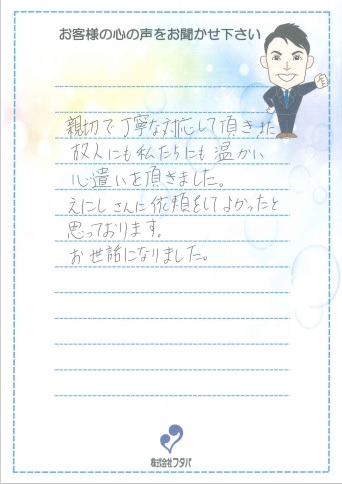 お客様の心の声をお聞かせ下さい
親切で丁寧な対応して頂きました
故人にも私たちにも温かい
心遣いを頂きました。
えにしさんに依頼をしてよかったと
思っております。
お世話になりました。
株式会社フタバ